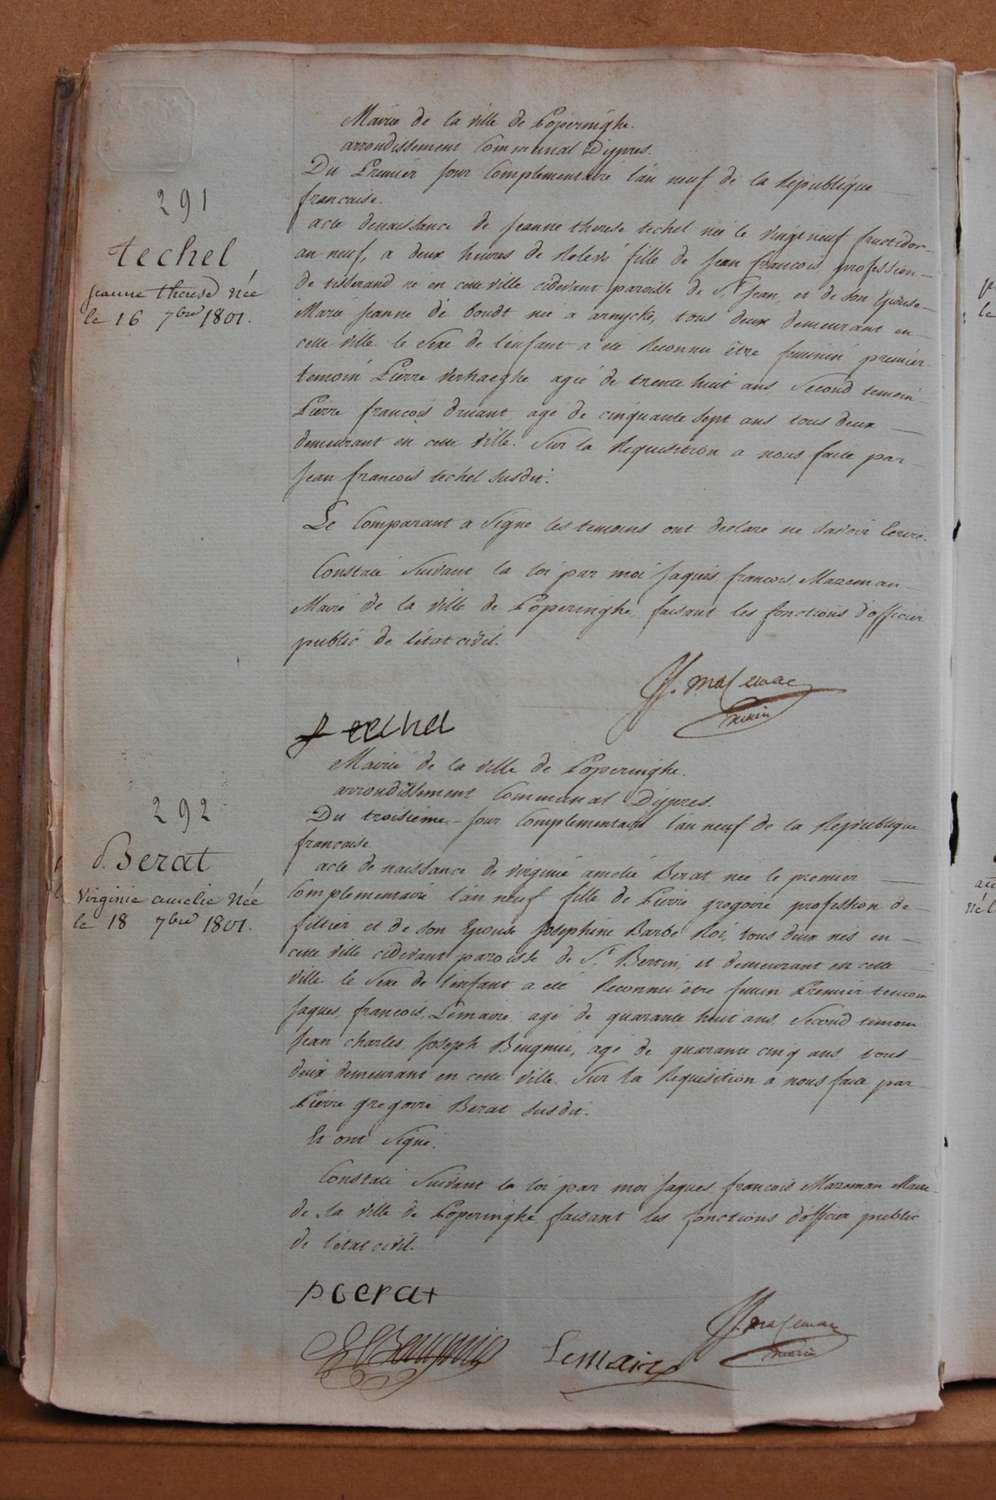 Mairie de la ville de Poperinghe.
arrondissement Communal Dypres.
Du Premier jour Complementaire l'an neuf de la Republique
francaise.
291
techel
jeanne therese née
le 16 7bre 1801.
acte denaissance de jeanne therese techel née le vingt neuf fructidor
an neuf, a deux heures de Relevé fille de jean francois profession
de tisserand né en cette ville cidevant paroisse de St jean, et de son Epouse
Marie jeanne de boudt née a arnycke, tous deux demeurant en
cette ville le Sexe de l'enfant a eté Reconnu être feminin premier
temoin Pierre Verhaeghe agée de trente huit ans Second temoin
Pierre francois druant age de cinquante sept ans tous deux
demeurant en cette ville. Sur la Requisition a nous faite par
jean francois techel susdit.
Le Comparant a Signé les temoins ont declaré ne Savoir Ecrire.
Constaté Suivant la loi par moi jaques francois Mazeman
Maire de la ville de Poperinghe faisant les fonctions d'officier
public de l'état civil.
jf. mazeman
maire
f techel
Mairie de la ville de Poperinghe.
arrondissement Communal Dypres.
Du troisieme jour Complementaire l'an neuf de la Republique
francaise
292
Berat
Virginie amelie Née
le 18 7bre 1801.
acte de naissance de virginie amelie Berat née le premier
Complementaire l'an neuf fille de Pierre gregoire profession de
fillier et de son Epouse Josephine Barbe Roi, tous deux nés en
cette ville cidevant paroisse de St Bertin, et demeurant en cette
ville le Sexe de l'enfant a eté Reconnu être femin Premier temoin
jaques francois Lemaire agé de quarante huit ans Second temoin
jean charles joseph Beugnie, age de quarante cinq ans tous
deux demeurant en cette ville. Sur la Requisition a nous faite par
Pierre gregoire Berat susdit.
Et ont signé.
Constaté Suivant la loi par moi jaques francois Mazeman Maire
de la ville de Poperinghe faisant les fonctions d'officier public
de l'état civil.
p g erat
Beugnie
Lemaire
jf. mazeman
maire